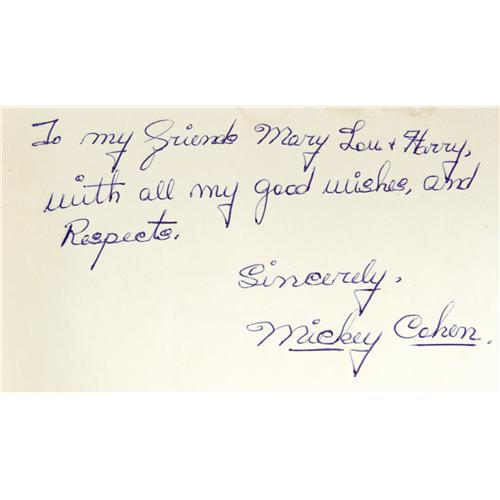 To my friends Mary Lou + Harry,
with all my good wishes, and
Respects.
Sincerely,
Mickey Cohen.